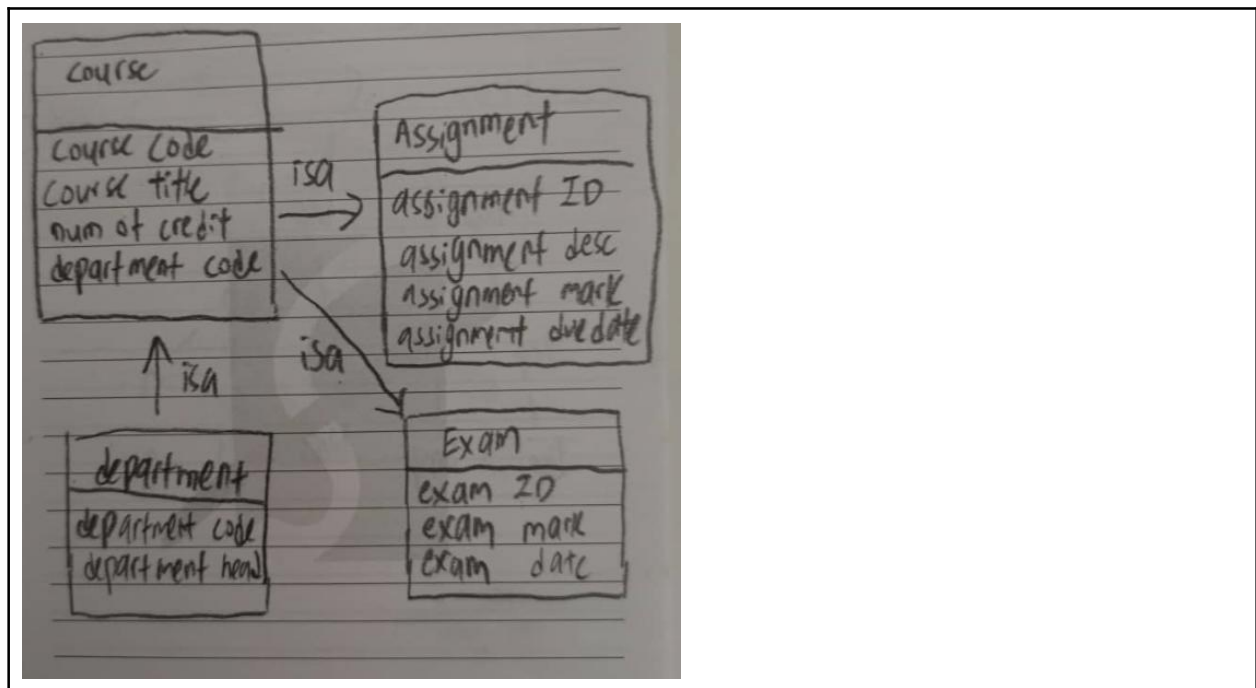 course
course code
course title
num of credit
department code
isa
Assignment
assignment ID
assignment desc
assignment mark
assignment duedate
isa
isa
department
department code
department head
Exam
exam ID
exam mark
exam date